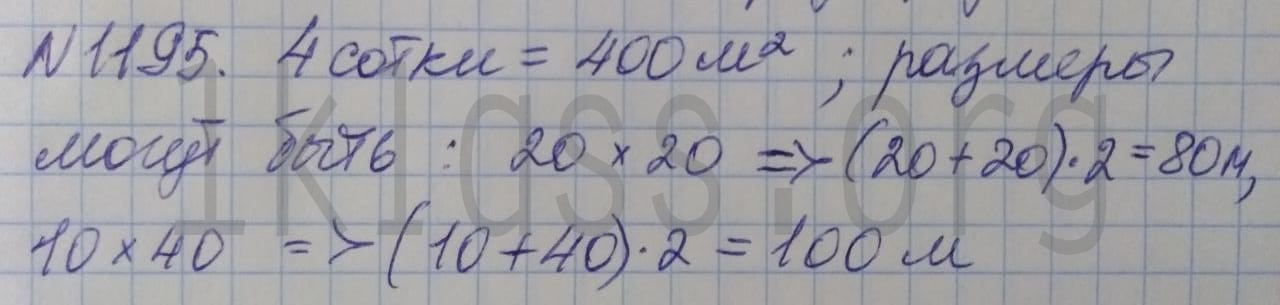 N1195. 4 сотки = 400 м² ; размеры
могут быть : 20 × 20 => (20 + 20) · 2 = 80 м,
10 × 40 => (10 + 40) · 2 = 100 м
1klass.org